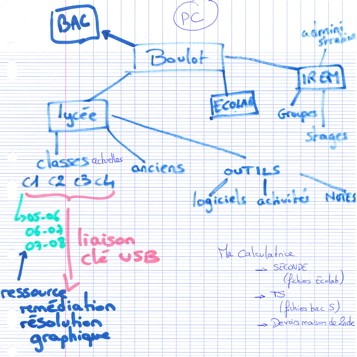 PC
BAC
Boulot
administration
IREM
Groupes
stages
ECOLAB
lycée
classes actuelles
anciens
C1 C2 C3 C4
OUTILS
logiciels activités NOTES
05-06
06-07
07-08
liaison
clé USB
ressource
remédiation
résolution
graphique
Ma Calculatrice
→ SECONDE
(fichiers Ecolab)
→ TS
(fichiers bac S)
→ Devoirs maison de 2nde